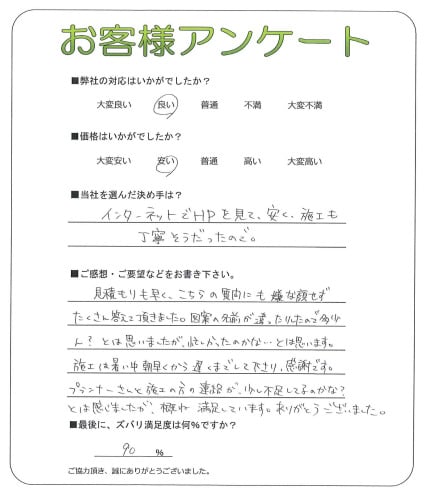 お客様アンケート
■弊社の対応はいかがでしたか？
大変良い 良い 普通 不満 大変不満
■価格はいかがでしたか？
大変安い 安い 普通 高い 大変高い
■当社を選んだ決め手は？
インターネットでHPを見て、安く、施工も
丁寧そうだったので。
■ご感想・ご要望などをお書き下さい。
見積もりも早く、こちらの質問にも嫌な顔せず
たくさん答えて頂きました。図案の名前が違ったりしたので多少
ん？とは思いましたが、忙しかったのかな…とは思います。
施工は暑い中朝早くから遅くまでして下さり、感謝です。
プランナーさんと施工の方の連絡が、少し不足してるのかな？
とは感じましたが、概ね満足しています。ありがとうございました。
■最後に、ズバリ満足度は何％ですか？
90 %
ご協力頂き、誠にありがとうございました。